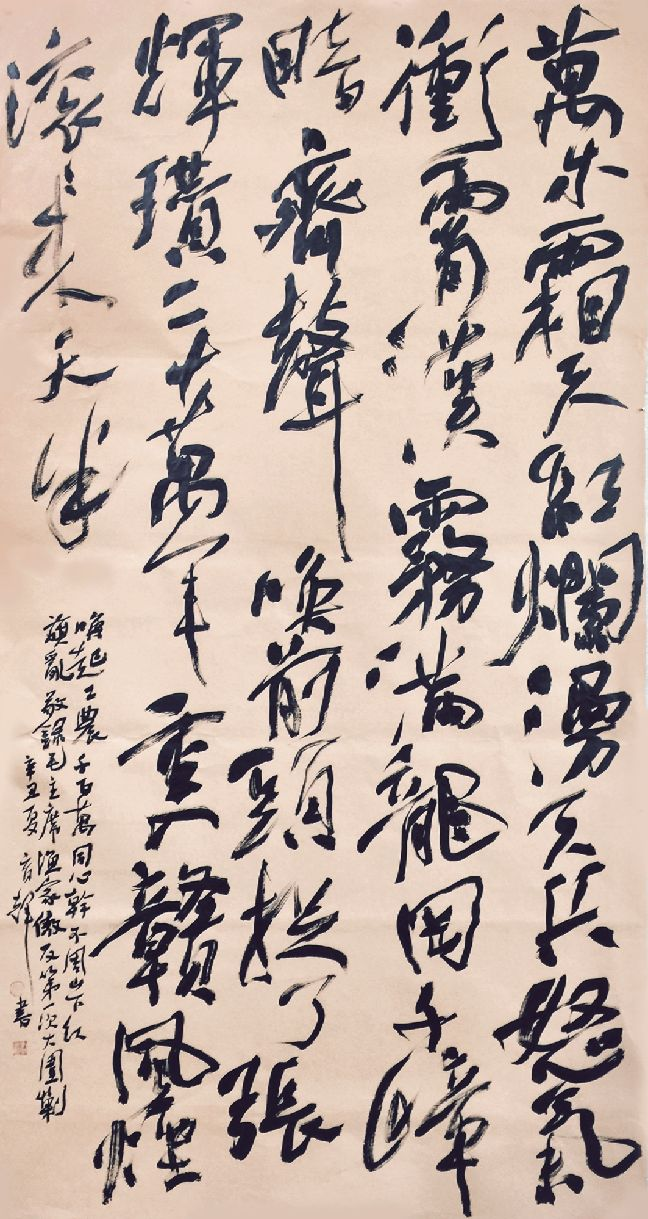 萬木霜天紅爛漫天兵怒氣
衝霄漢霧滿龍岡千嶂
暗齊聲喚前頭捉了張
輝瓚二十萬軍重入贛風煙
滾〻来天半
喚起工農千百萬同心幹不周山下紅
旗亂敬錄毛主席漁家傲反第一次大圍剿
辛丑夏書